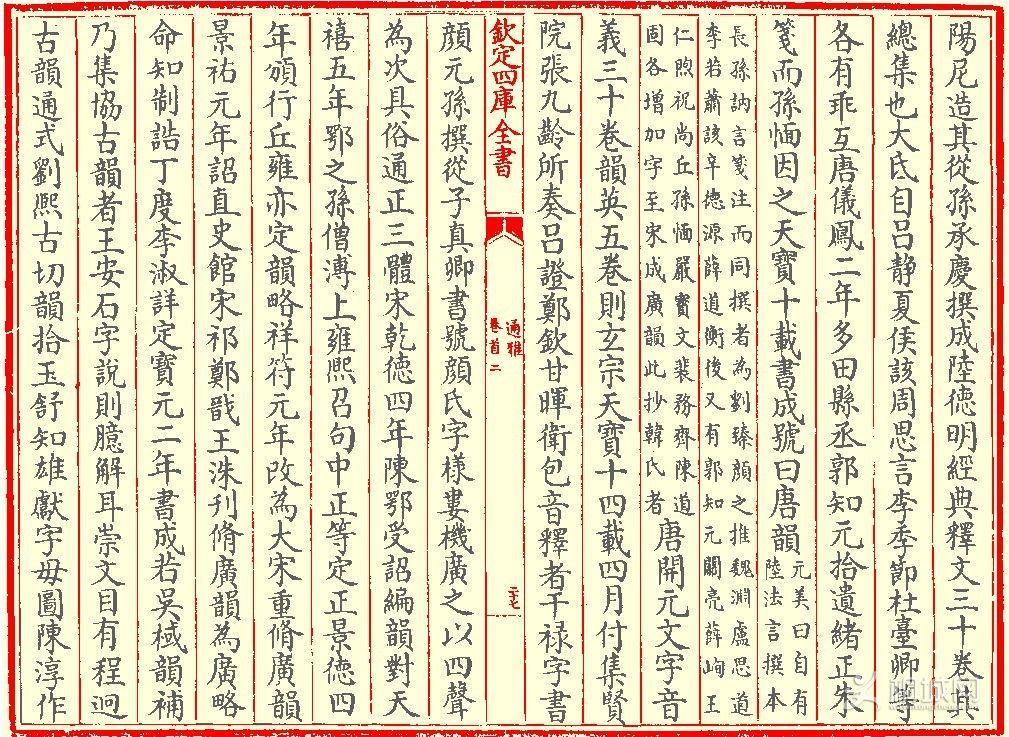 陽尼造其從孫承慶撰成陸德明經典釋文三十卷其
總集也大氐自呂静夏侯該周思言李季節杜臺卿等
各有乖互唐儀鳳二年多田縣丞郭知元拾遺緒正朱
箋而孫愐因之天寶十載書成號曰唐韻
元美曰自有
陸法言撰本
長孫訥言箋注而同撰者為劉臻顔之推魏淵盧思道
李若蕭該辛德源薛道衡後又有郭知元關亮薛峋王
仁煦祝尚丘孫愐嚴寳文裴務齊陳道
固各增加字至宋成廣韻此抄韓氏者
唐開元文字音
義三十卷韻英五卷則玄宗天寶十四載四月付集賢
院張九齡所奏吕證鄭欽甘暉衛包音釋者干禄字書
欽定四庫全書
通雅
卷首二
二十七
顔元孫撰從子真卿書號顔氏字様婁機廣之以四聲
為次具俗通正三體宋乾德四年陳鄂受詔編韻對天
禧五年鄂之孫僧溥上雍熙召句中正等定正景德四
年頒行丘雍亦定韻略祥符元年改為大宋重脩廣韻
景祐元年詔直史館宋祁鄭戩王洙刋脩廣韻為廣略
命知制誥丁度李淑詳定寶元二年書成若吳棫韻補
乃集協古韻者王安石字說則臆解耳崇文目有程迥
古韻通式劉熙古切韻拾玉舒知雄獻字母圖陳淳作